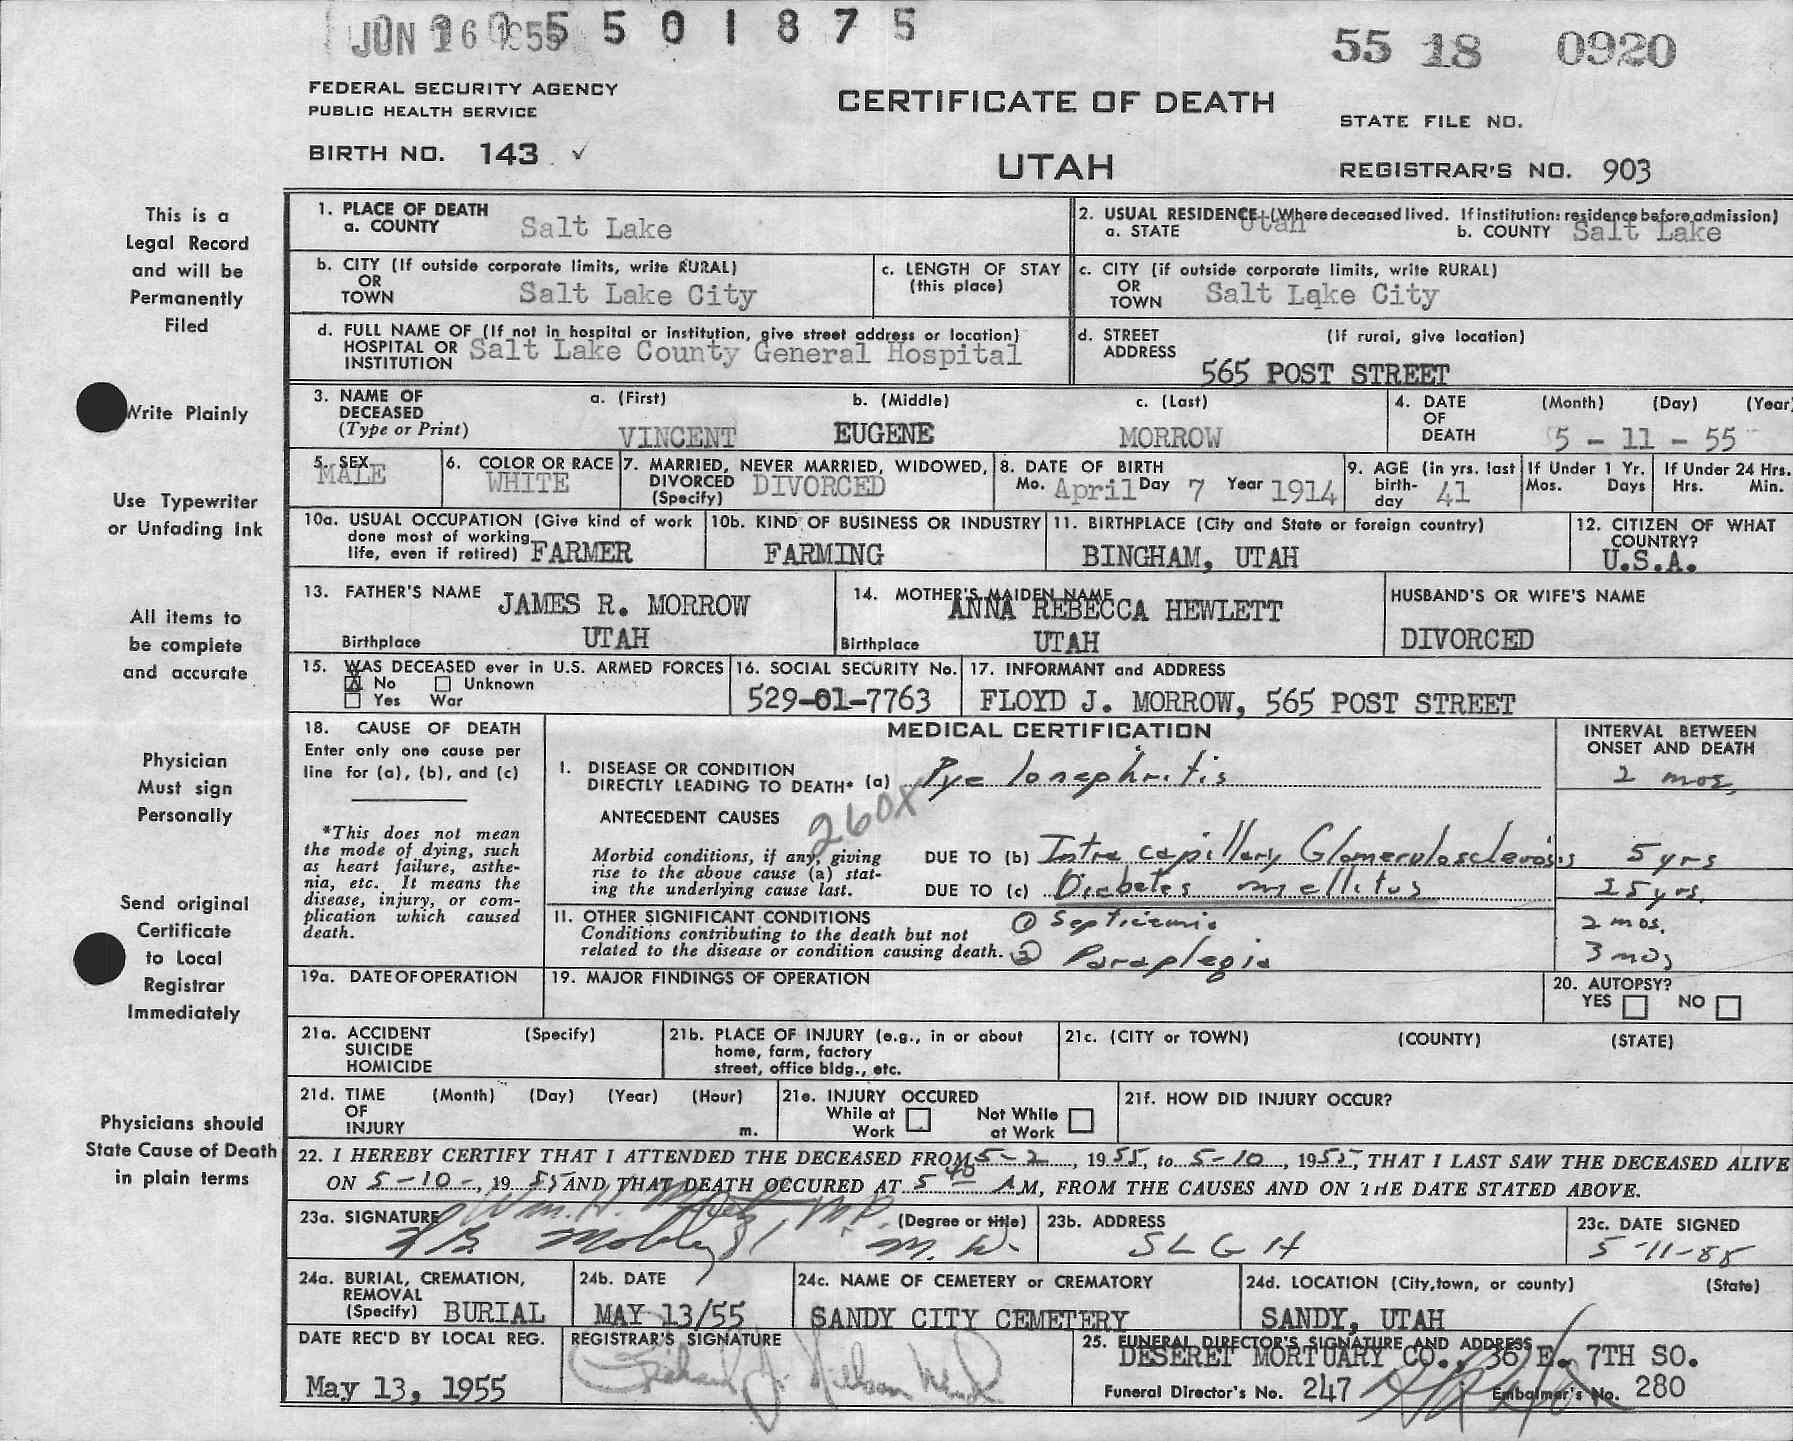 JUN 16 1955 5501875
55 18 0920
FEDERAL SECURITY AGENCY
PUBLIC HEALTH SERVICE
CERTIFICATE OF DEATH
STATE FILE NO.
BIRTH NO. 143 ✓
UTAH
REGISTRAR'S NO. 903
This is a
Legal Record
and will be
Permanently
Filed
Write Plainly
Use Typewriter
or Unfading Ink
All items to
be complete
and accurate
Physician
Must sign
Personally
Send original
Certificate
to Local
Registrar
Immediately
Physicians should
State Cause of Death
in plain terms
1. PLACE OF DEATH
a. COUNTY Salt Lake
2. USUAL RESIDENCE (Where deceased lived. If institution: residence before admission)
a. STATE Utah b. COUNTY Salt Lake
b. CITY (If outside corporate limits, write RURAL)
OR
TOWN Salt Lake City
c. LENGTH OF STAY
(this place)
c. CITY (if outside corporate limits, write RURAL)
OR
TOWN Salt Lake City
d. FULL NAME OF (If not in hospital or institution, give street address or location)
HOSPITAL OR
INSTITUTION Salt Lake County General Hospital
d. STREET (If rural, give location)
ADDRESS
565 POST STREET
3. NAME OF
DECEASED
(Type or Print)
a. (First) b. (Middle) c. (Last)
VINCENT EUGENE MORROW
4. DATE (Month) (Day) (Year
OF
DEATH 5 - 11 - 55
5. SEX
MALE
6. COLOR OR RACE
WHITE
7. MARRIED, NEVER MARRIED, WIDOWED,
DIVORCED
(Specify) DIVORCED
8. DATE OF BIRTH
Mo. April Day 7 Year 1914
9. AGE (in yrs. last
birth-
day 41
If Under 1 Yr.
Mos. Days
If Under 24 Hrs.
Hrs. Min.
10a. USUAL OCCUPATION (Give kind of work
done most of working
life, even if retired) FARMER
10b. KIND OF BUSINESS OR INDUSTRY
FARMING
11. BIRTHPLACE (City and State or foreign country)
BINGHAM, UTAH
12. CITIZEN OF WHAT
COUNTRY?
U.S.A.
13. FATHER'S NAME JAMES R. MORROW
Birthplace UTAH
14. MOTHER'S MAIDEN NAME
ANNA REBECCA HEWLETT
Birthplace UTAH
HUSBAND'S OR WIFE'S NAME
DIVORCED
15. WAS DECEASED ever in U.S. ARMED FORCES
X No Unknown
Yes War
16. SOCIAL SECURITY No.
529-01-7763
17. INFORMANT and ADDRESS
FLOYD J. MORROW, 565 POST STREET
18. CAUSE OF DEATH
Enter only one cause per
line for (a), (b), and (c)
*This does not mean
the mode of dying, such
as heart failure, asthe-
nia, etc. It means the
disease, injury, or com-
plication which caused
death.
MEDICAL CERTIFICATION
INTERVAL BETWEEN
ONSET AND DEATH
I. DISEASE OR CONDITION
DIRECTLY LEADING TO DEATH* (a) Pyelonephritis 2 mos.
ANTECEDENT CAUSES 260X
Morbid conditions, if any, giving
rise to the above cause (a) stat-
ing the underlying cause last.
DUE TO (b) Intra capillary Glomerulosclerosis 5 yrs
DUE TO (c) Diabetes mellitus 25 yrs.
II. OTHER SIGNIFICANT CONDITIONS
Conditions contributing to the death but not
related to the disease or condition causing death.
① Septicemia 2 mos.
② Paraplegia 3 mos
19a. DATE OF OPERATION
19. MAJOR FINDINGS OF OPERATION
20. AUTOPSY?
YES NO
21a. ACCIDENT (Specify)
SUICIDE
HOMICIDE
21b. PLACE OF INJURY (e.g., in or about
home, farm, factory
street, office bldg., etc.
21c. (CITY or TOWN) (COUNTY) (STATE)
21d. TIME (Month) (Day) (Year) (Hour)
OF
INJURY m.
21e. INJURY OCCURED
While at Work Not While at Work
21f. HOW DID INJURY OCCUR?
22. I HEREBY CERTIFY THAT I ATTENDED THE DECEASED FROM 5-2, 1955, to 5-10, 1955, THAT I LAST SAW THE DECEASED ALIVE
ON 5-10-, 1955 AND THAT DEATH OCCURED AT 5 40 A M, FROM THE CAUSES AND ON THE DATE STATED ABOVE.
23a. SIGNATURE Wm. H. M.D. (Degree or title)
Mobley M.D.
23b. ADDRESS
SLGH
23c. DATE SIGNED
5-11-55
24a. BURIAL, CREMATION,
REMOVAL
(Specify) BURIAL
24b. DATE
MAY 13/55
24c. NAME OF CEMETERY or CREMATORY
SANDY CITY CEMETERY
24d. LOCATION (City, town, or county) (State)
SANDY, UTAH
DATE REC'D BY LOCAL REG.
May 13, 1955
REGISTRAR'S SIGNATURE
25. FUNERAL DIRECTOR'S SIGNATURE AND ADDRESS
DESERET MORTUARY CO., 36 E. 7TH SO.
Funeral Director's No. 247 Embalmer's No. 280